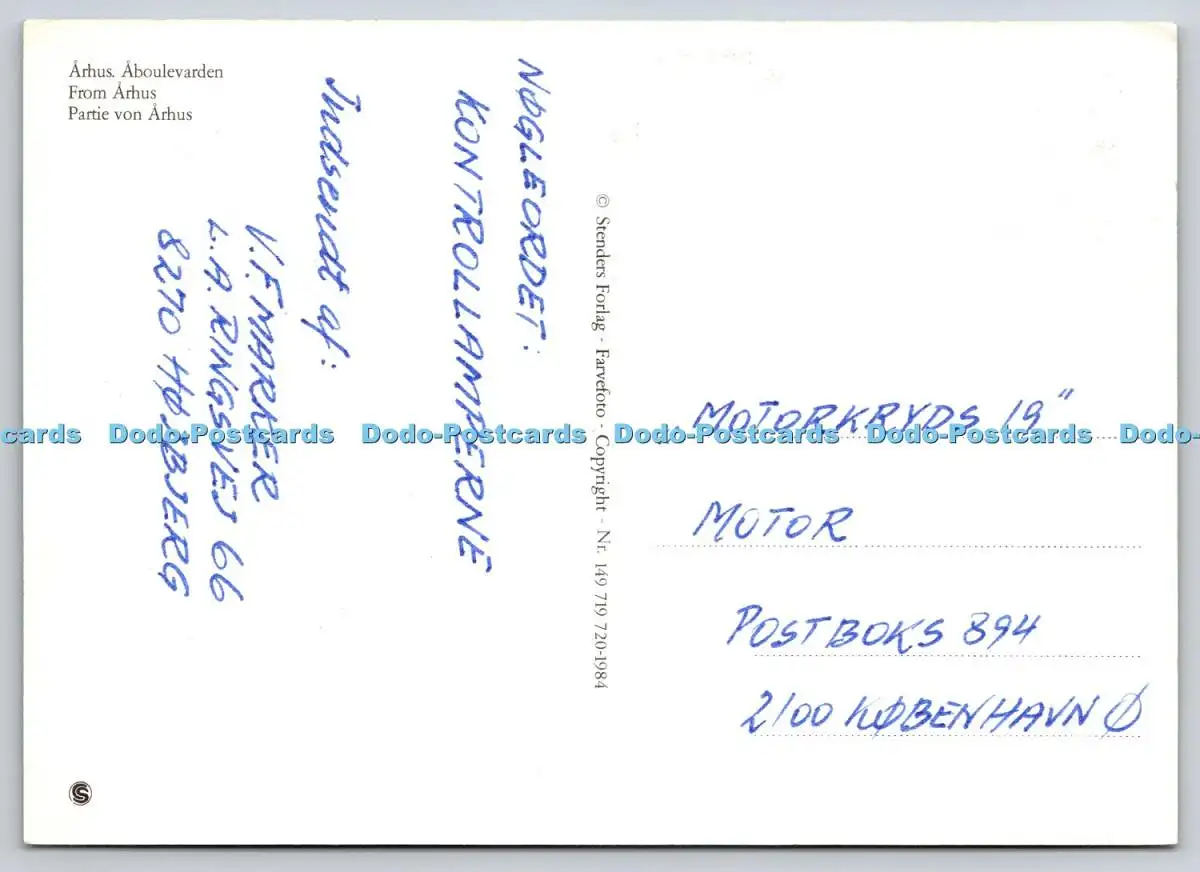 Århus. Åboulevarden
From Århus
Partie von Århus
NØGLEORDET:
KONTROLLAMPERNE
Indsendt af:
V.F. MARKER
L.A. RINGSVEJ 66
8270 HØJBJERG
© Stenders Forlag - Farvefoto - Copyright - Nr. 149 719 720-1984
"MOTORKRYDS 19"
MOTOR
POSTBOKS 894
2100 KØBENHAVN Ø
cards Dodo-Postcards Dodo-Postcards Dodo-Postcards Dodo-Postcards Dodo-
S